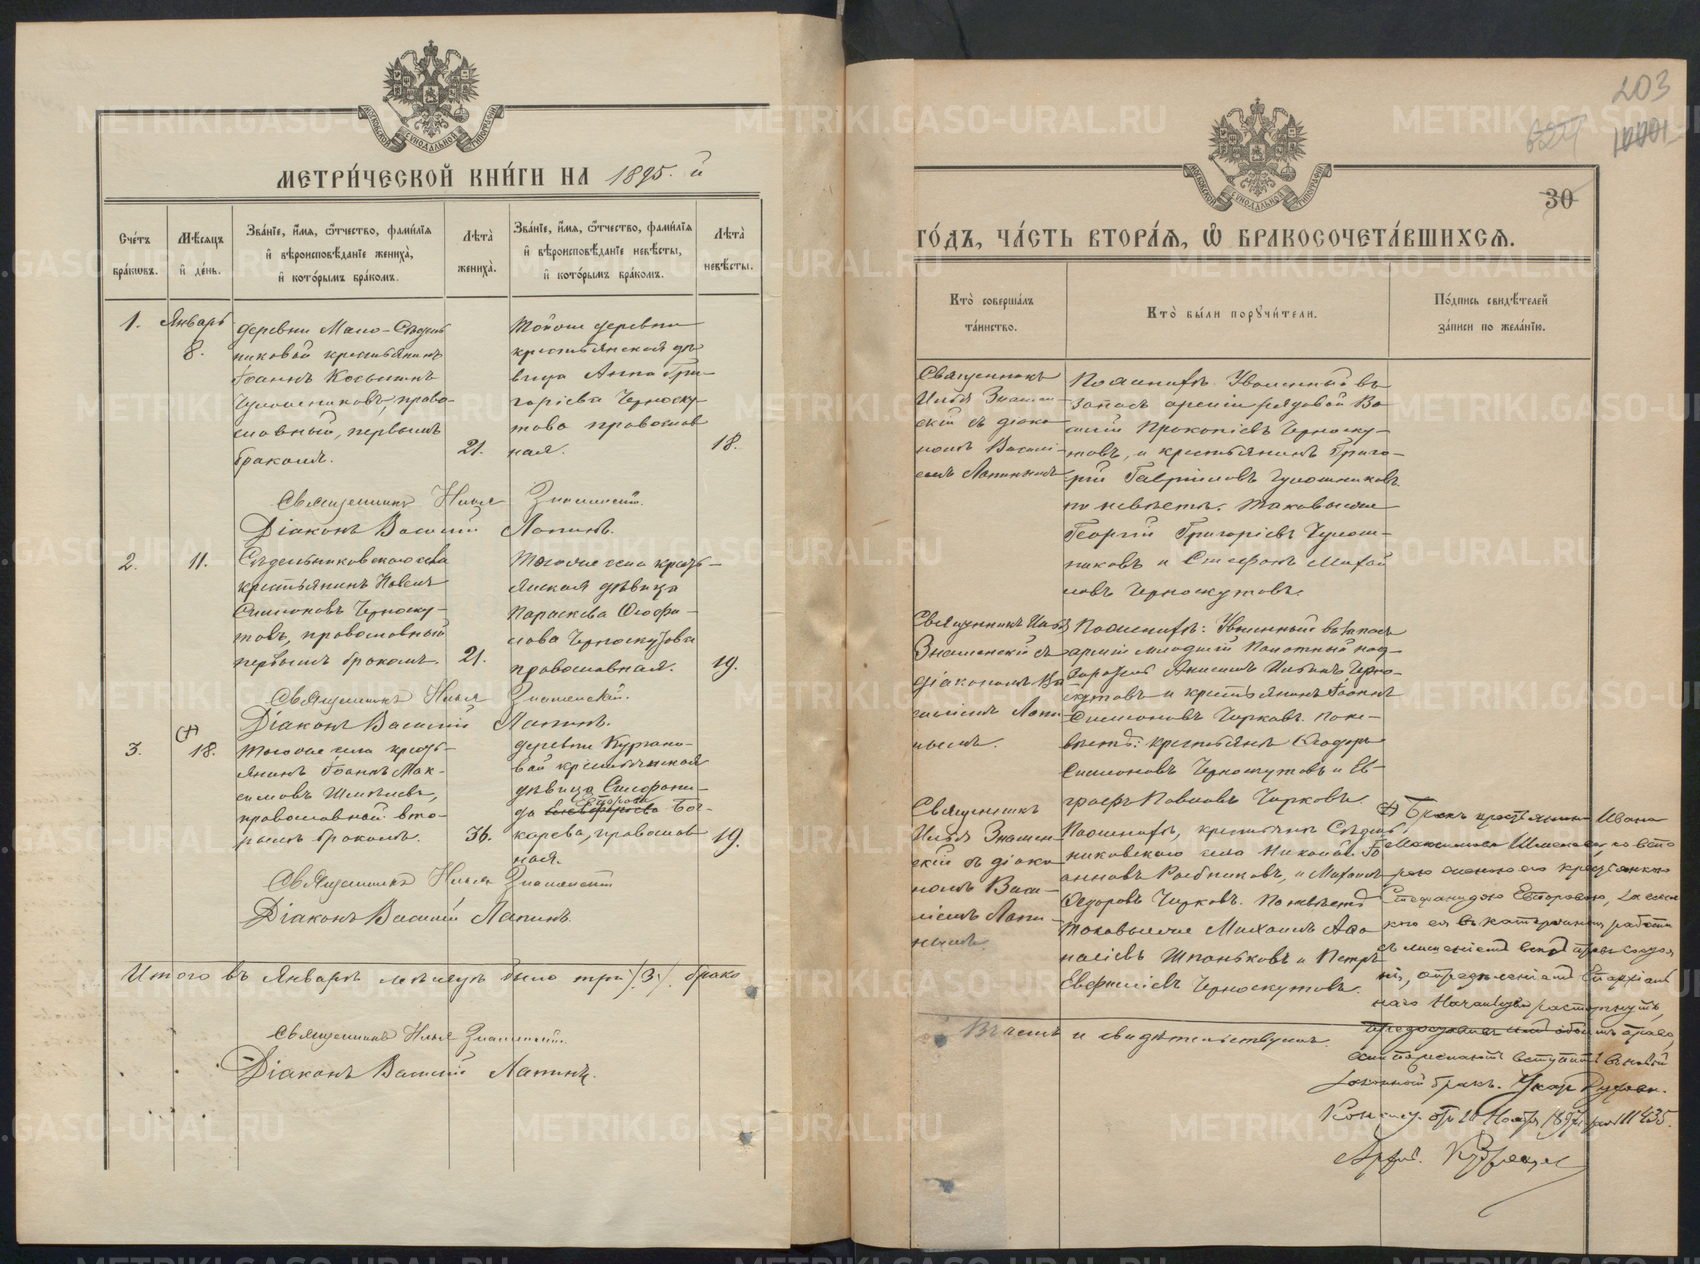 МЕТРИ́ЧЕСКОЙ КНИ́ГИ НА 1895. й
Сче́тъ бра́кωвъ.
Мѣ́сяцъ и҆ де́нь.
Зва́нїе, и҆́мя, ѻ҆́тчество, фами́лїя и҆ вѣроисповѣ́данїе жениха̀, и҆ кото́рымъ бра́комъ.
Лѣ́та̀ жениха̀.
Зва́нїе, и҆́мя, ѻ҆́тчество, фами́лїя и҆ вѣроисповѣ́данїе невѣ́сты, и҆ кото́рымъ бра́комъ.
Лѣ́та̀ невѣ́сты.
1. Январь 8.
деревни Мало-Сѣдель
никовой крестьянинъ
Іоаннъ Косьминъ
Чумошниковъ, право-
славный, первымъ
бракомъ.
21.
Тойже деревни
крестьянская дѣ
вица Анна Гри-
горіева Черноску
това православ
ная.
18.
Священникъ Илья Знаменскій.
Діаконъ Василій Лапинъ.
2. 11.
Сѣдельниковскаго села
крестьянинъ Павелъ
Симеоновъ Черноску-
товъ, православный
первымъ бракомъ.
21.
Тогоже села кресть-
янская дѣвица
Параскева Ѳеофи-
лова Черноскутова
православная.
19.
Священникъ Илья Знаменскій.
Діаконъ Василій Лапинъ.
3. (+) 18.
Тогоже села кресть-
янинъ Іоаннъ Мак-
симовъ Шмелевъ,
православной вто-
рымъ бракомъ.
36.
деревни Кургано-
вой крестьянская
дѣвица Стефани-
да Егорова Бо-
карева, православ
ная.
19.
Священникъ Илья Знаменскій
Діаконъ Василій Лапинъ.
Итого въ Январѣ мѣсяцѣ было три /3/. брака
Священникъ Илья Знаменскій.
Діаконъ Василій Лапинъ.
203
30
ГО́ДЪ, ЧА́СТЬ ВТОРА́Я, Ѽ БРАКОСОЧЕТА́ВШИХСЯ.
Кто̀ соверша́лъ та́инство.
Кто̀ бы́ли порꙋчи́тели.
По́дпись свидѣ́телей за́писи по жела́нїю.
Священникъ
Илья Знамен-
скій съ діако
номъ Василі-
емъ Лапинымъ
По женихѣ: Уволенный въ
запасъ арміи рядовой Ва
силій Прокопіевъ Черноску-
товъ, и крестьянинъ Григо-
рій Гавриловъ Чумошниковъ
по невѣстѣ: таковыеже
Георгій Григоріевъ Чумош-
никовъ и Стефанъ Михай
ловъ Черноскутовъ.
Священникъ Илья
Знаменскій съ
діакономъ Ва
силіемъ Лапи-
нымъ.
По женихѣ: Уволенный въ запасъ
арміи младшій
Илья
скутовъ и крестьянинъ Іоаннъ
Симеоновъ Чирковъ. По не-
вѣстѣ: крестьяне Ѳеодоръ
Симеоновъ Черноскутовъ и Ев-
графъ Павловъ Чирковъ.
Священникъ
Илья Знамен-
скій съ діако
номъ Васи-
ліемъ Лапи-
нымъ.
По женихѣ, крестьяне Сѣдель
никовскаго села Николай Іо
анновъ и Михаилъ
Ѳедоровъ Чирковъ. По невѣстѣ
таковыеже Михаилъ Аѳа
насіевъ и Петръ
Евфиміевъ Черноскутовъ.
(+) Бракъ крестьянина Ивана
Максимова Шмелева со вто
рою женою его крестьянкою
Стефанидою Егоровою, за
въ каторжныя работы
съ лишеніемъ всѣхъ правъ состоя
нія, опредѣленіемъ Епархіаль
наго Начальства расторгнутъ,
вступить въ новый
законный бракъ. Указъ
Консист. отъ 20 Ноября 1897 г. за № 11435.
Въ чемъ и свидѣтельствуемъ.